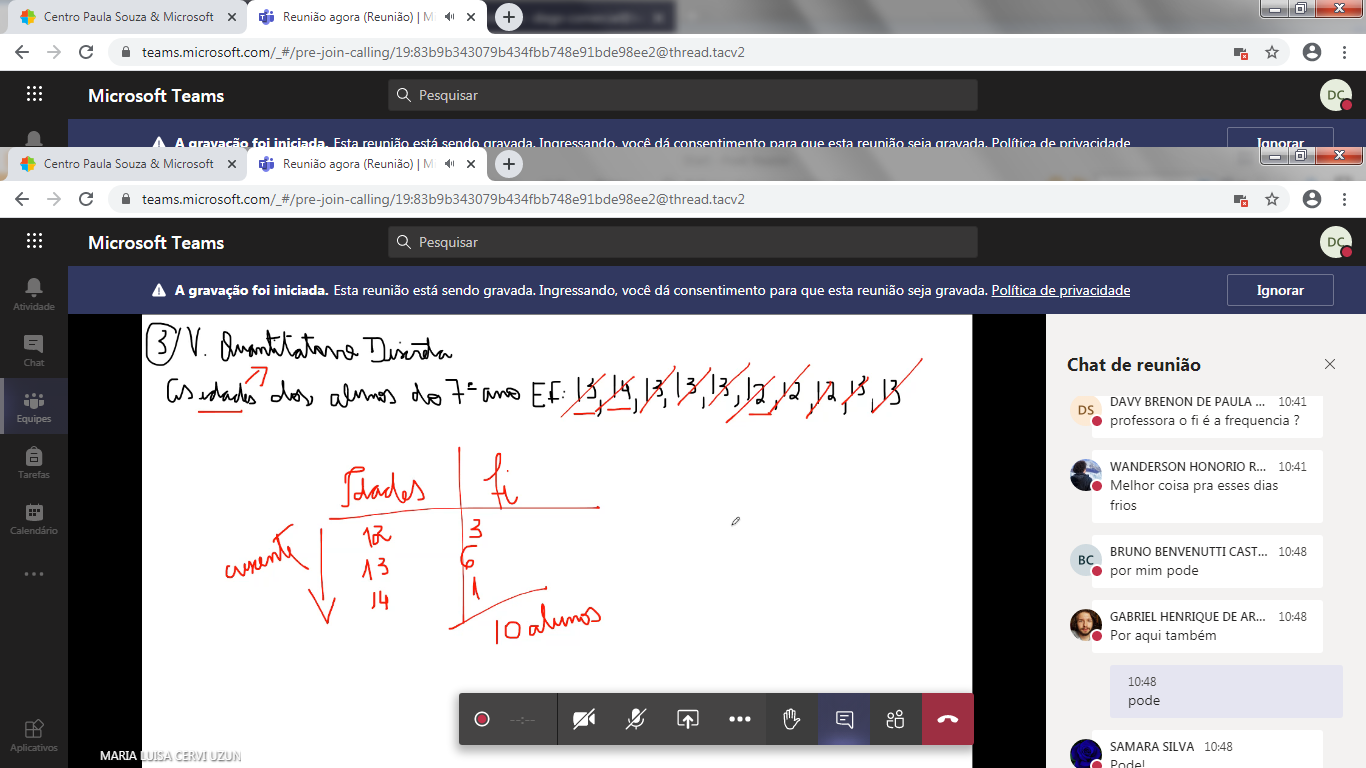 Centro Paula Souza & Microsoft
Reunião agora (Reunião) | Mi
teams.microsoft.com/_#/pre-join-calling/19:83b9b343079b434fbb748e91bde98ee2@thread.tacv2
Microsoft Teams
Pesquisar
DC
A gravação foi iniciada. Esta reunião está sendo gravada. Ingressando, você dá consentimento para que esta reunião seja gravada. Política de privacidade
Ignorar
Centro Paula Souza & Microsoft
Reunião agora (Reunião) | Mi
teams.microsoft.com/_#/pre-join-calling/19:83b9b343079b434fbb748e91bde98ee2@thread.tacv2
Microsoft Teams
Pesquisar
DC
A gravação foi iniciada. Esta reunião está sendo gravada. Ingressando, você dá consentimento para que esta reunião seja gravada. Política de privacidade
Ignorar
Atividade
Chat
Equipes
Tarefas
Calendário
Aplicativos
3/V. Quantitativa Discreta
As idades dos alunos do 7º ano EF: 13, 14, 13, 13, 13, 12, 12, 12, 13, 13
Idades fi
12 3
13 6
14 1
crescente
10 alunos
--:--
MARIA LUISA CERVI UZUN
Chat de reunião
DS
DAVY BRENON DE PAULA ... 10:41
professora o fi é a frequencia ?
WANDERSON HONORIO R... 10:41
Melhor coisa pra esses dias
frios
BC
BRUNO BENVENUTTI CAST... 10:48
por mim pode
GABRIEL HENRIQUE DE AR... 10:48
Por aqui também
10:48
pode
SAMARA SILVA 10:48
Pode!